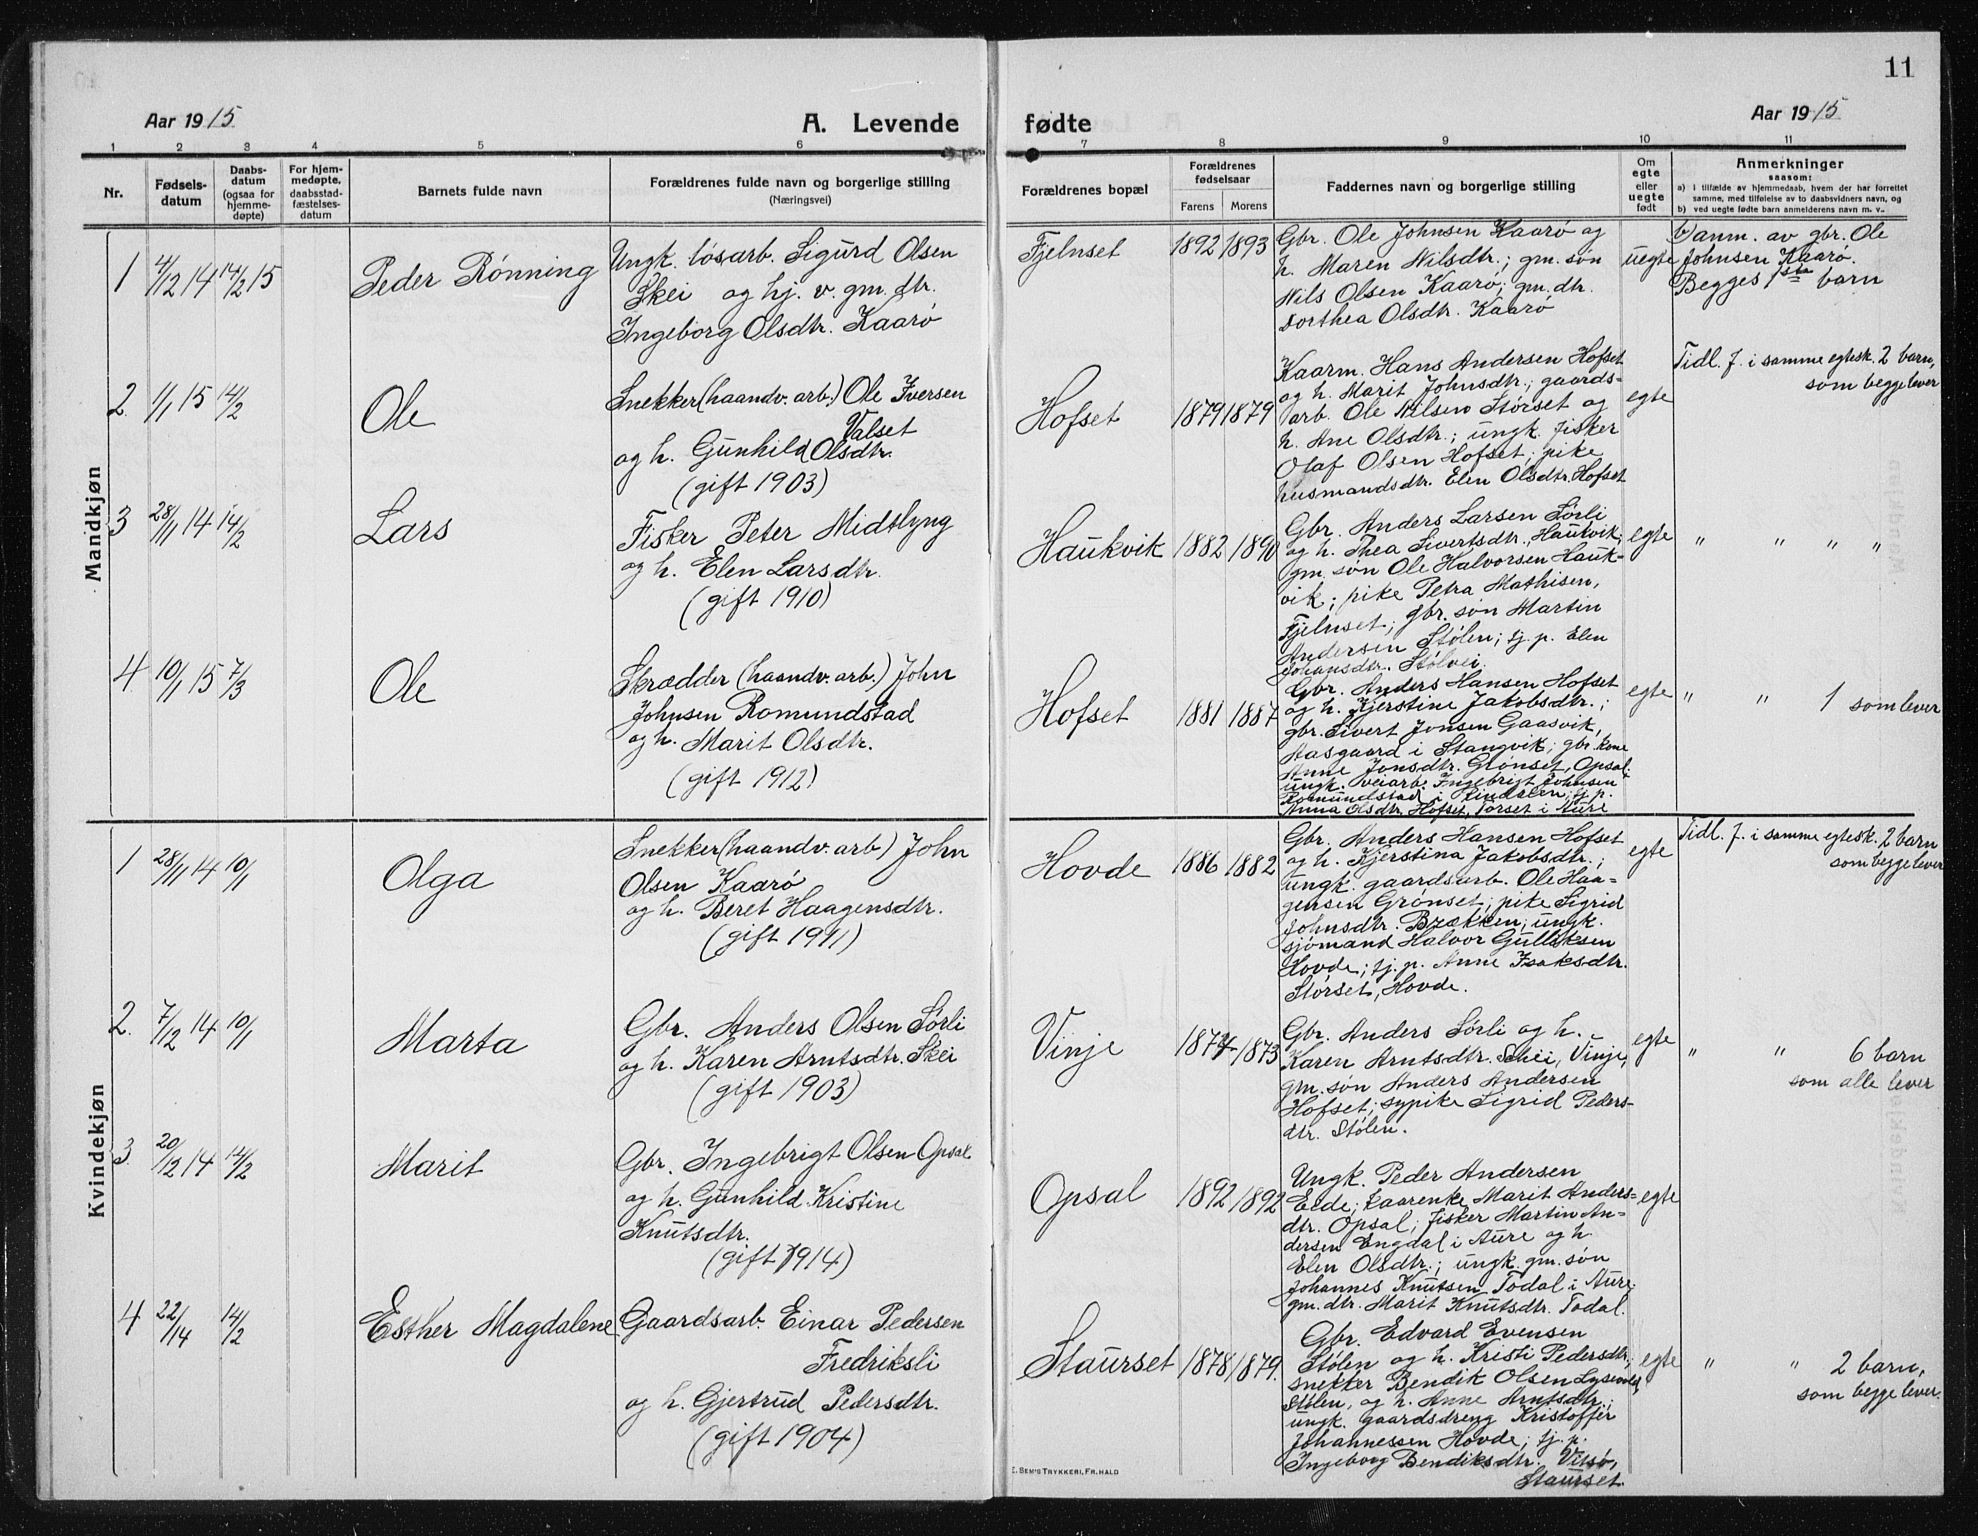 11
Aar 1915
A. Levende
fødte
Aar 1915
1 2 3 4 5 6 7 8 9 10 11
Nr.
Fødsels-
datum
Daabs-
datum
(ogsaa for
hjemme-
døpte)
For hjem-
medøpte,
daabsstad-
fæstelses-
datum
Barnets fulde navn
Forældrenes fulde navn og borgerlige stilling
(Næringsvei)
Forældrenes bopæl
Forældrenes
fødselsaar
Farens Morens
Faddernes navn og borgerlige stilling
Om
egte
eller
uegte
født
Anmerkninger
saasom:
a) i tilfælde av hjemmedaab, hvem der har forrettet
samme, med tilføielse av to daabsvidners navn, og
b) ved uegte fødte barn anmelderens navn m. v..
Mandkjøn
1 4/12 14 14/2 15
Peder Rønning
Ungk. løsarb. Sigurd Olsen
Skei og hj. v. gm. dtr.
Ingeborg Olsdtr. Kaarø
Fjelnset
1892 1893
Gbr. Ole Johnsen Kaarø og
h. Maren Nilsdtr.; gm. søn
Nils Olsen Kaarø; gm. dtr.
Dorthea Olsdtr. Kaarø
uegte
b) anm. av gbr. Ole
Johnsen Kaarø.
Begges 1ste barn
2 1/1 15 14/2
Ole
Snekker (haandv. arb.) Ole Iversen
Valset
og h. Gunhild Olsdtr.
(gift 1903)
Hofset
1879 1879
Kaarm. Hans Andersen Hofset
og h. Marit Johnsdtr.; gaards-
arb. Ole Nilsen Størset og
h. Ane Olsdtr.; ungk. fisker
Olaf Olsen Hofset; pike
husmandsdtr. Elen Olsdtr. Hofset
egte
Tidl. f. i samme egtesk. 2 barn,
som begge lever
3 28/11 14 14/2
Lars
Fisker Peter Midtlyng
og h. Elen Larsdtr.
(gift 1910)
Haukvik
1882 1890
Gbr. Anders Larsen Sørli
og h. Thea Sivertsdtr., Haukvik;
gm. søn Ole Halvorsen Hauk-
vik; pike Petra Mathisen,
Fjelnset; gbr. søn Martin
Andersen Stølen; tj. p. Elen
Johansdtr. Stølvei.
egte
" " " "
4 10/1 15 7/3
Ole
Skrædder (haandv. arb.) John
Johnsen Romundstad
og h. Marit Olsdtr.
(gift 1912)
Hofset
1881 1887
Gbr. Anders Hansen Hofset
og h. Kjerstine Jakobsdtr.;
gbr. Sivert Jonsen Gaasvik,
Aasgaard i Stangvik; gbr. kone
Anne Jonsdtr. Grønset, Opsal;
ungk. veiarb. Ingebrigt Johnsen
Romundstad i Rindalen; tj. p.
Anna Olsdtr. Hofset, Torset i Aure
egte
" " 1 som lever
Kvindekjøn
1 28/11 14 10/1
Olga
Snekker (haandv. arb) John
Olsen Kaarø
og h. Beret Haagensdtr.
(gift 1911)
Hovde
1886 1882
Gbr. Anders Hansen Hofset
og h. Kjerstina Jakobsdtr.;
ungk. gaardsarb. Ole Haa-
gensen Grønset; pike Sigrid
Johnsdtr. Brækken; ungk.
sjømand Halvor Gulleksen
Hovde; tj. p. Anne Isaksdtr.
Størset, Hovde.
egte
Tidl. f. i samme egtesk. 2 barn
som begge lever
2. 7/12 14 10/1
Marta
Gbr. Anders Olsen Sørli
og h. Karen Arntsdtr. Skei
(gift 1903)
Vinje
1874 1873
Gbr. Anders Sørli og h.
Karen Arntsdtr. Schei, Vinje;
gm. søn Anders Andersen
Hofset; sypike Sigrid Peders-
dtr. Stølen.
egte
" " 6 barn
som alle lever
3 20/12 14 14/2
Marit
Gbr. Ingebrigt Olsen Opsal
og h. Gunhild Kristine
Knutsdtr.
(gift 1914)
Opsal
1892 1892
Ungk. Peder Andersen
Eide; kaarenke Marit Anders-
dtr. Opsal; fisker Martin An-
dersen Engdal i Aure og h.
Elen Olsdtr.; ungk. gm. søn
Johannes Knutsen Todal i Aure;
gm. dtr. Marit Knutsdtr. Todal.
egte
4 22/14 14/2
Esther Magdalene
Gaardsarb. Einar Pedersen
Fredriksli
og h. Gjertrud Pedersdtr.
(gift 1904)
Staurset
1878 1879.
Gbr. Edvard Evensen
Stølen og h. Kristi Pedersdtr.;
snekker Bendik Olsen
Stølen, og h. Anne Arntsdtr.;
ungk. gaardsdreng Kristoffer
Johannessen Hovde; tj. p.
Ingeborg Bendiksdtr. Vitsø,
Staurset.
egte
" " 2 barn,
som begge lever.
E. SEM'S TRYKKERI, FR.HALD